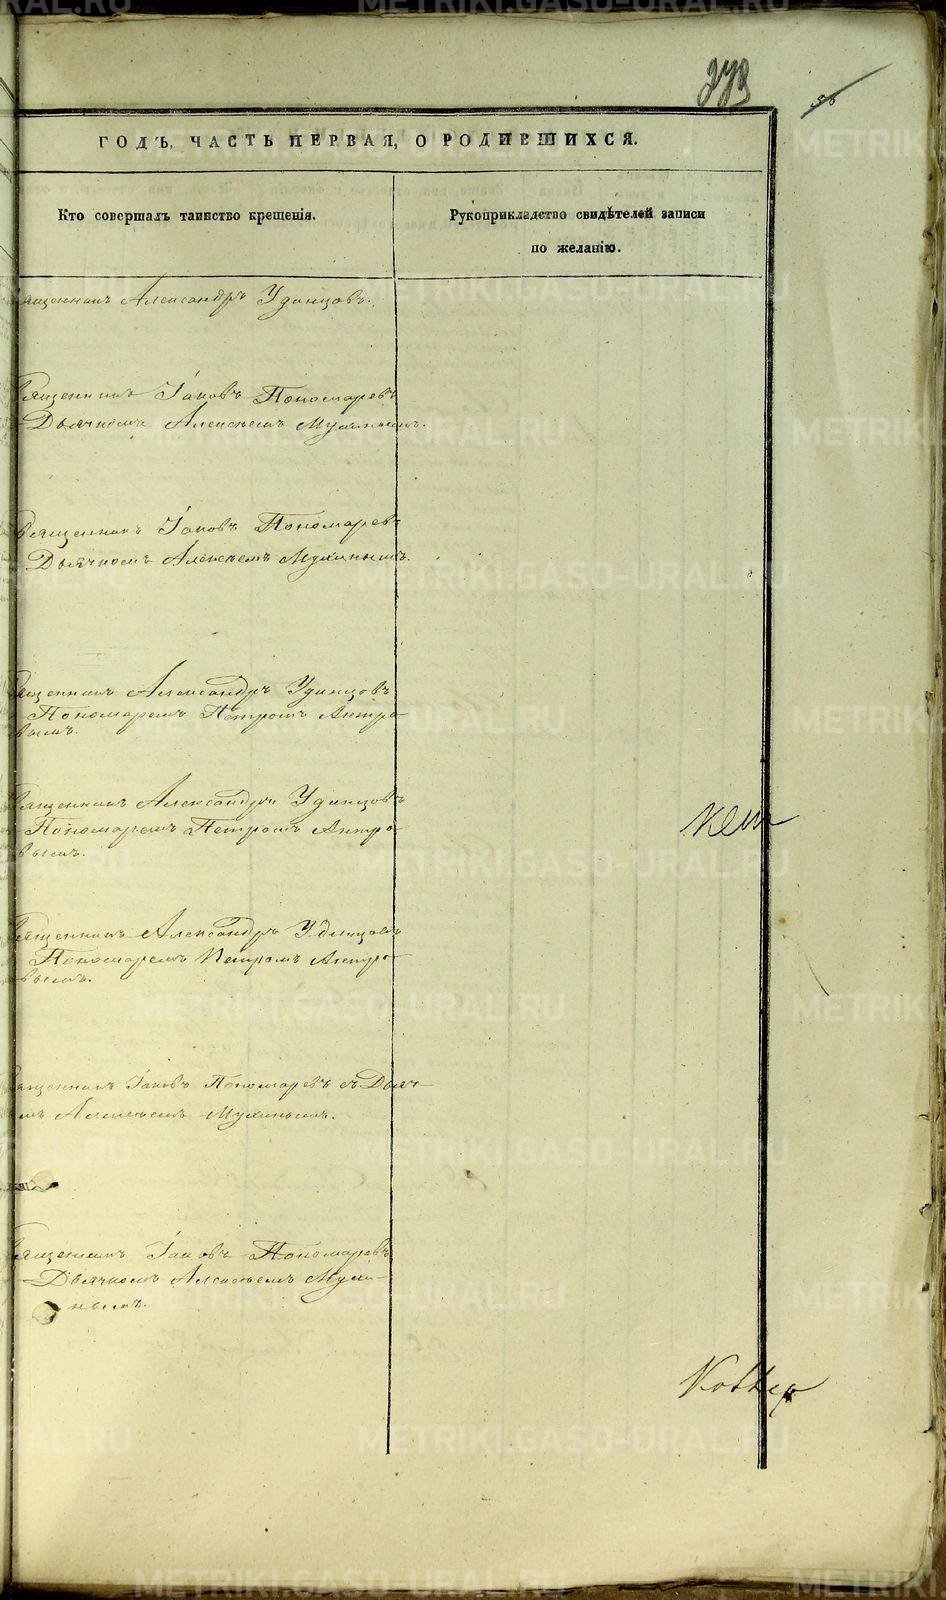 273
56
ГОДЪ, ЧАСТЬ ПЕРВАЯ, О РОДИВШИХСЯ.
Кто совершалъ таинство крещенія.
Рукоприкладство свидѣтелей записи
по желанію.
ященникъ Александръ Удинцовъ.
вященникъ Іаковъ Пономаревъ
Дьячкомъ Алексѣемъ Мухинымъ.
вященникъ Іаковъ Пономаревъ
Дьячкомъ Алексѣемъ Мухинымъ.
ященникъ Александръ Удинцовъ
Пономаремъ Петромъ Антро-
вымъ.
вященникъ Александръ Удинцовъ
Пономаремъ Петромъ Антро-
вымъ.
вященникъ Александръ Удинцовъ
Пономаремъ Петромъ Антро-
вымъ.
ященникъ Іаковъ Пономаревъ съ Дьяч-
мъ Алексѣемъ Мухинымъ.
вященникъ Іаковъ Пономаревъ
Дьячкомъ Алексѣемъ Мухи-
нымъ.
METRIKI.GASO-URAL.RU